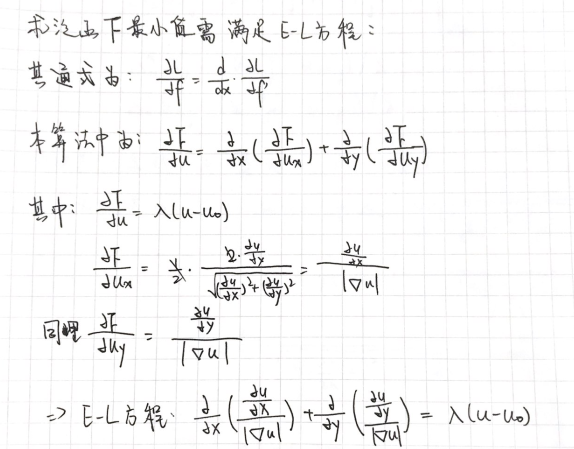 求泛函下最小值需满足E-L方程：
其通式为: ∂L/∂f = d/dx · ∂L/∂f'
本算法中为: ∂F/∂u = ∂/∂x (∂F/∂ux) + ∂/∂y (∂F/∂uy)
其中: ∂F/∂u = λ(u-u₀)
∂F/∂ux = 1/2 · (2·∂u/∂x) / √((∂u/∂x)² + (∂u/∂y)²) = (∂u/∂x) / |∇u|
同理 ∂F/∂uy = (∂u/∂y) / |∇u|
=> E-L方程: ∂/∂x ((∂u/∂x) / |∇u|) + ∂/∂y ((∂u/∂y) / |∇u|) = λ(u-u₀)